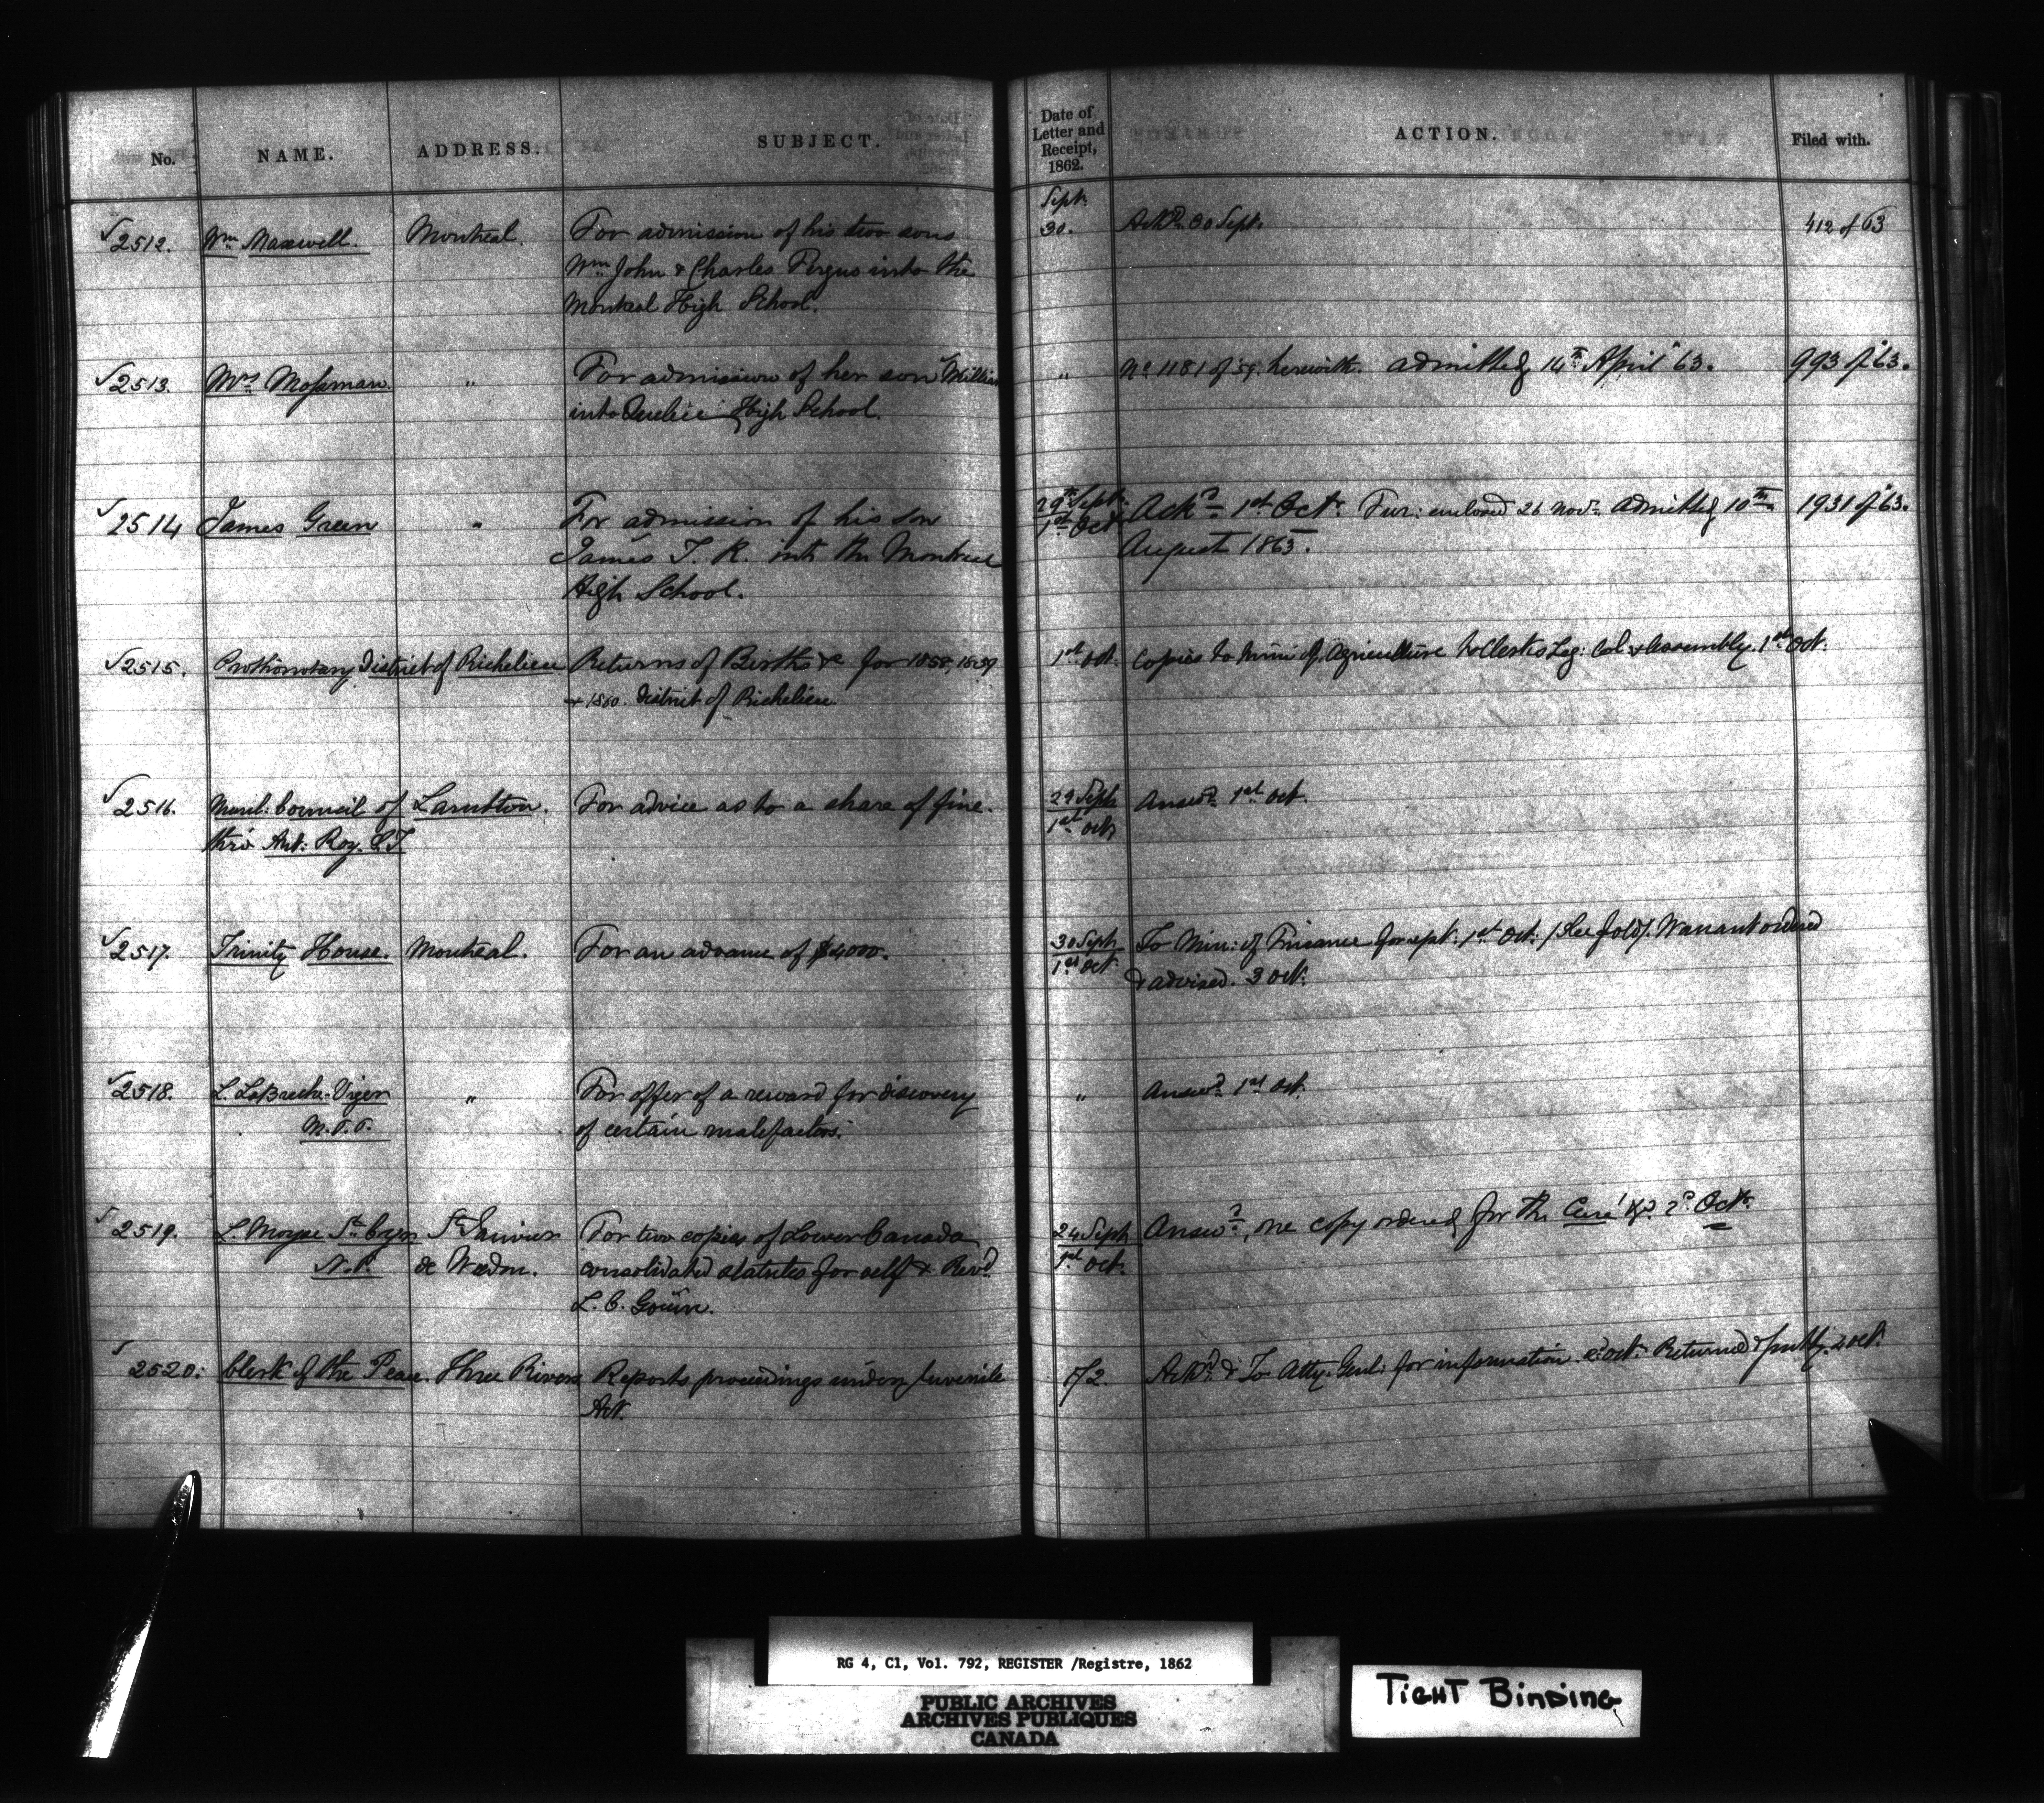 No. NAME. ADDRESS. SUBJECT. Date of Letter and Receipt, 1862. ACTION. Filed with.
Sept.
√2512. Wm Maxwell. Montreal. For admission of his two sons 30. Ackd. 30 Sept. 412 of 63
Wm John & Charles Fergus into the
Montreal High School.
√2513. Mrs Mossman. " For admission of her son William " No 1181 of 59. herewith. admitted 14th April '63. 993 of '63.
into Quebec High School.
√2514 James Green " For admission of his son 29th Sept. Ackd 1st Oct. Fur: enclosed 26 Novr. admitted 10th 1931 of '63.
James T. R. into the Montreal 1st Oct August 1863.
High School.
√2515. Prothonotary District of Richelieu Returns of Births &c for 1858, 1859 1st Oct. Copies to Min: of Agriculture & Clerks Leg: Col & Assembly. 1st Oct.
& 1860. District of Richelieu.
√2516. Munl: Council of Lambton. For advice as to a share of fine. 29 Sept Answd 1st Oct.
thro' Ant: Roy. S.T. 1st Oct
√2517. Trinity House. Montreal. For an advance of $4000. 30 Sept To Min: of Finance for rept: 1st Oct: (See fold). Warrant ordered
1st Oct & advised. 3 Oct.
√2518. L. LaBreche-Viger " For offer of a reward for discovery " Answd 1st Oct.
M.P.P. of certain malefactors.
√2519. L. Moyse St Cyr St Janvier For two copies of Lower Canada 24 Sept Answd, one copy ordered for the Curé &c 2d Oct.
N.P. de Weedon. consolidated statutes for self & Revd. 1st Oct.
L. C. Gouin.
√2520. Clerk of the Peace. Three Rivers Reports proceedings under Juvenile 1/2. Ackd. & To Atty. Genl: for information 2 Oct. Returned & 2 Oct.
Act.
RG 4, C1, Vol. 792, REGISTER /Registre, 1862
PUBLIC ARCHIVES
ARCHIVES PUBLIQUES
CANADA
TIGHT BINDING